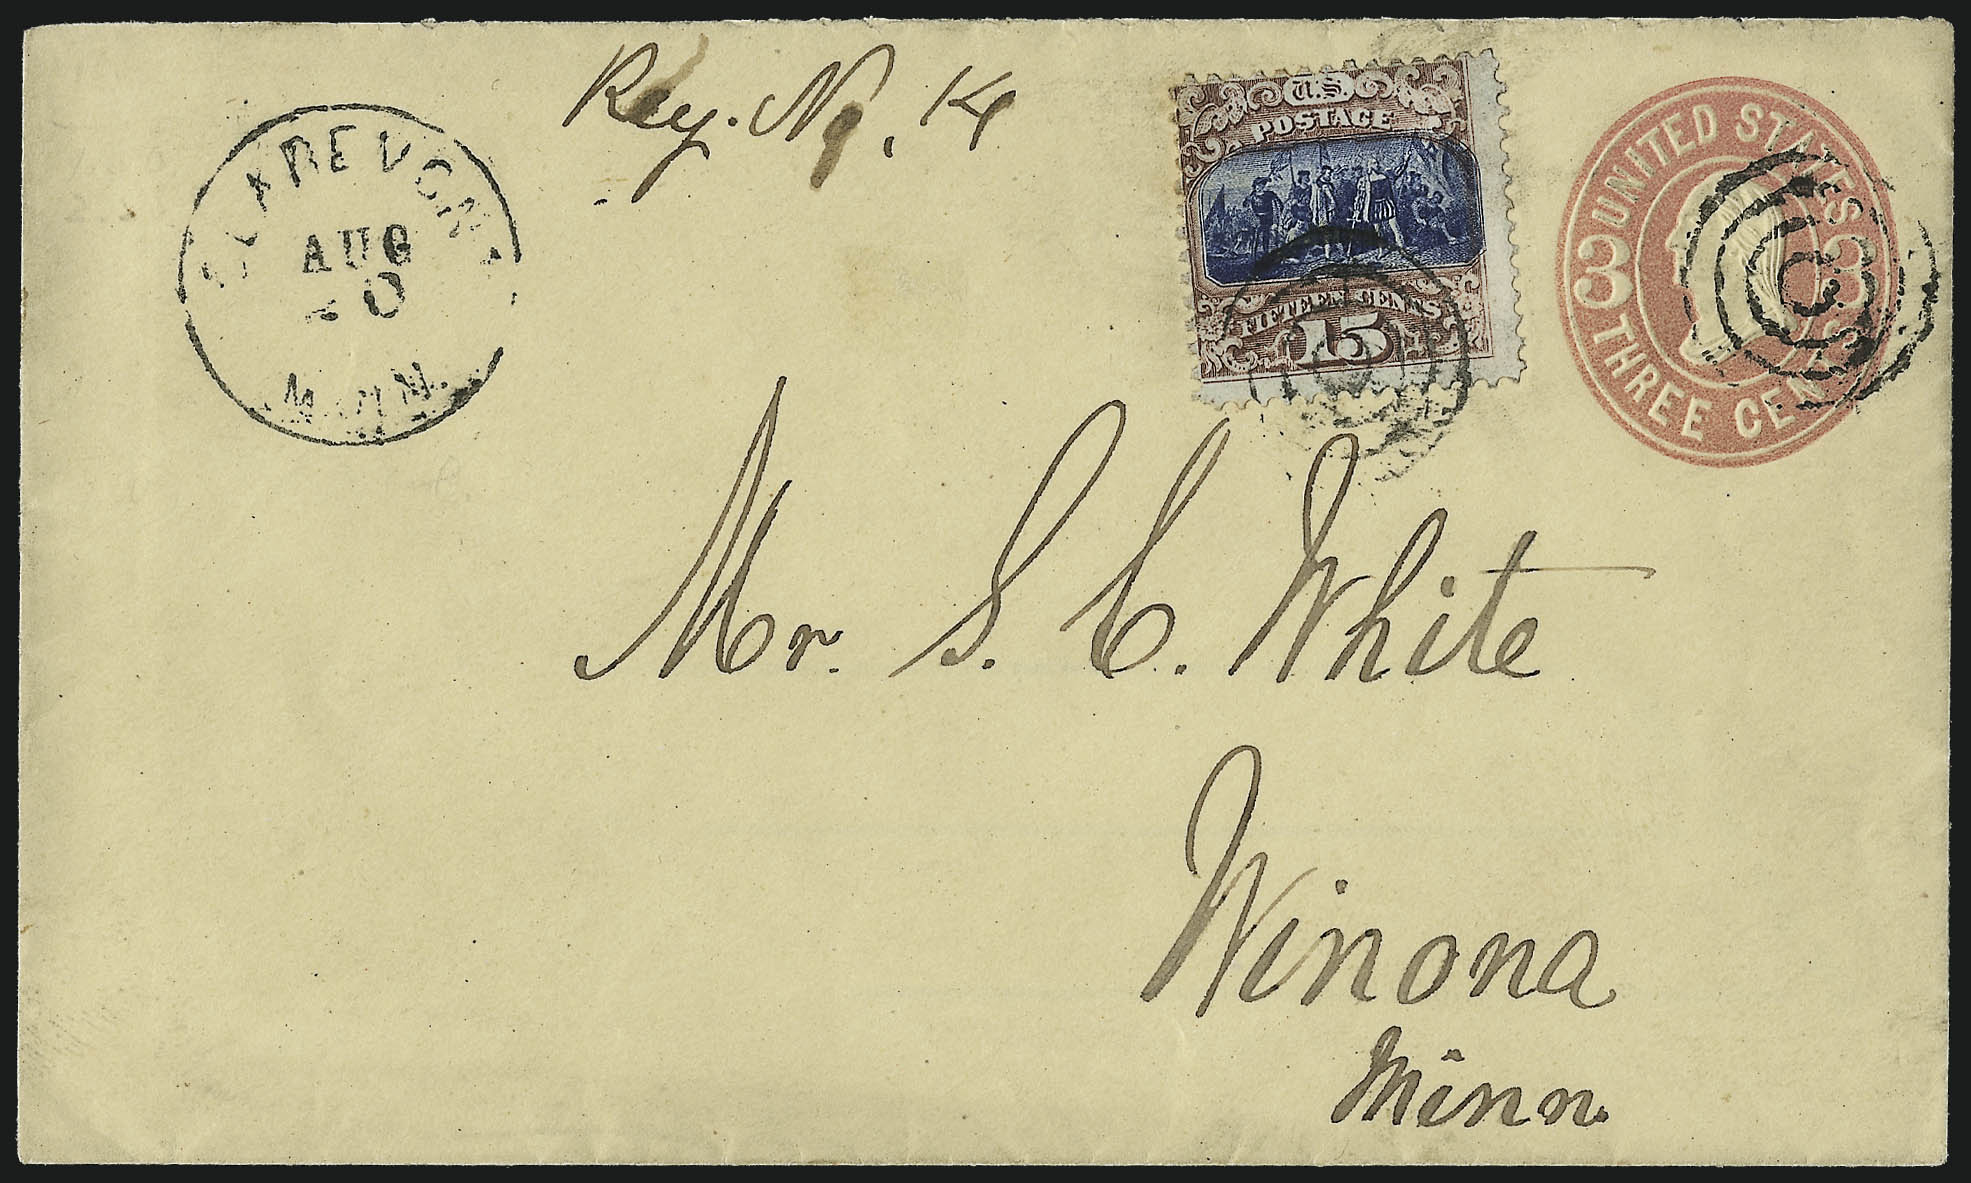 Reg. No. 14
CLAREMONT
AUG
20
MINN.
U.S.
POSTAGE
FIFTEEN CENTS
15
UNITED STATES
3 3
THREE CENTS
Mr. S. C. White
Winona
Minn.